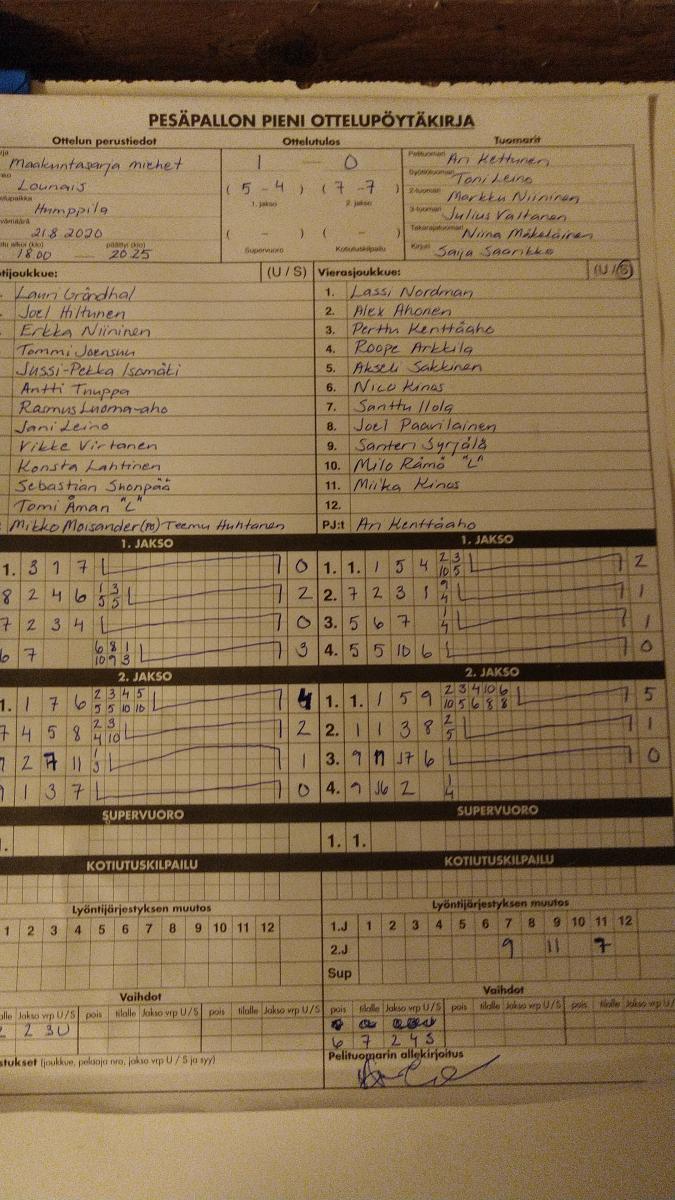 PESÄPALLON PIENI OTTELUPÖYTÄKIRJA
Ottelun perustiedot Ottelutulos Tuomarit
Maakuntasarja miehet 1 0 Pelituomari Ari Kettunen
Lounais ( 5 - 4 ) ( 7 - 7 ) Syöttötuomari Toni Leino
1. jakso 2. jakso 2-tuomari Markku Niininen
Humppila 3-tuomari Julius Valtanen
21.8 2020 ( - ) ( - ) Takarajatuomari Niina Mäkeläinen
18.00 päättyi (klo) 20.25 Supervuoro Kotiutuskilpailu Kirjuri Saija Saarikko
tijoukkue: (U / S) Vierasjoukkue: (U / S)
Lauri Gröndhal 1. Lassi Nordman
Joel Hiltunen 2. Alex Ahonen
Erkka Niininen 3. Perttu Kenttäaho
Tommi Joensuu 4. Roope Arkkila
Jussi-Pekka Isomäki 5. Akseli Sakkinen
Antti Tuuppa 6. Nico Kinos
Rasmus Luoma-aho 7. Santtu Ilola
Jani Leino 8. Joel Paavilainen
Vikke Virtanen 9. Santeri Syrjälä
Konsta Lahtinen 10. Milo Rämö "L"
Sebastian Skonpää 11. Miika Kinos
Tomi Åman "L" 12.
Mikko Moisander (m) Teemu Huhtanen PJ:t Ari Kenttäaho
1. JAKSO 1. JAKSO
1. 3 1 7 0 1. 1. 1 5 4 2/10 3/5 2
8 2 4 6 1/5 3/5 2 2. 7 2 3 1 9/4 1
7 2 3 4 0 3. 5 6 7 1/4 1
6 7 6/10 8/9 1/3 3 4. 5 5 10 6 0
2. JAKSO 2. JAKSO
1. 1 7 6 2/5 3/5 4/10 5/10 4 1. 1. 1 5 9 2/10 3/5 4/6 10/8 6/8 5
7 4 5 8 2/4 3/10 2 2. 1 1 3 8 2/5 1
2 7 11 1/3 1 3. 9 11 17 6 0
9 1 3 7 0 4. 9 16 2 1/4
SUPERVUORO SUPERVUORO
1. 1. 1.
KOTIUTUSKILPAILU KOTIUTUSKILPAILU
Lyöntijärjestyksen muutos Lyöntijärjestyksen muutos
1 2 3 4 5 6 7 8 9 10 11 12 1.J 1 2 3 4 5 6 7 8 9 10 11 12
2.J 9 11 7
Sup
Vaihdot Vaihdot
tilalle Jakso vrp U / S pois tilalle Jakso vrp U / S pois tilalle Jakso vrp U / S pois tilalle Jakso vrp U / S pois tilalle Jakso vrp U / S pois tilalle Jakso vrp U /
2 2 3 U
6 7 2 4 S
(joukkue, pelaaja nro, jakso vrp U / S ja syy) Pelituomarin allekirjoitus